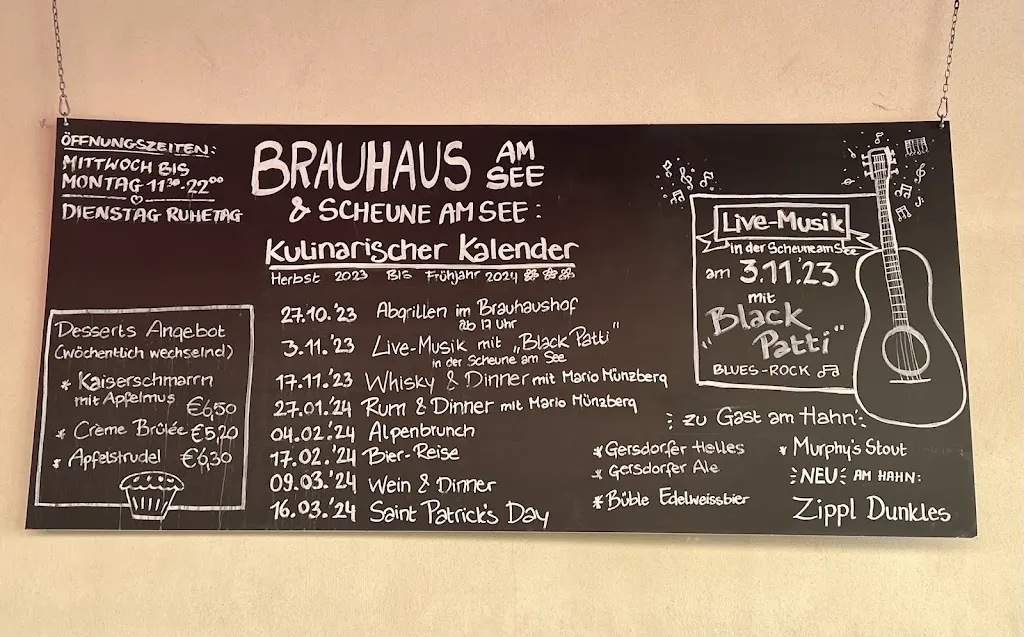 ÖFFNUNGSZEITEN:
MITTWOCH BIS
MONTAG 11³⁰-22⁰⁰
DIENSTAG RUHETAG
BRAUHAUS AM SEE
& SCHEUNE AM SEE:
Kulinarischer Kalender
Herbst 2023 BIS Frühjahr 2024
27.10.'23 Abgrillen im Brauhaushof
ab 17 Uhr
3.11.'23 Live-Musik mit „Black Patti"
in der Scheune am See
17.11.'23 Whisky & Dinner mit Mario Münzberg
27.01.'24 Rum & Dinner mit Mario Münzberg
04.02.'24 Alpenbrunch
17.02.'24 Bier-Reise
09.03.'24 Wein & Dinner
16.03.'24 Saint Patrick's Day
Desserts Angebot
(wöchentlich wechselnd)
* Kaiserschmarrn
mit Apfelmus €6,50
* Crème Brûlée €5,20
* Apfelstrudel €6,30
Live-Musik
in der Scheune am See
am 3.11.'23
mit
„Black
Patti"
BLUES-ROCK
zu Gast am Hahn:
* Gersdorfer Helles
* Gersdorfer Ale
* Büble Edelweissbier
* Murphy's Stout
NEU AM HAHN:
Zippl Dunkles